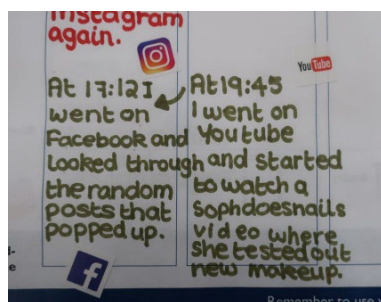 Instagram
again.
At 17:12 I
went on
Facebook and
Looked through
the random
posts that
popped up.
At 19:45
I went on
Youtube
and started
to watch a
Sophdoesnails
video where
she tested out
new makeup.
You Tube
f
Remember to use